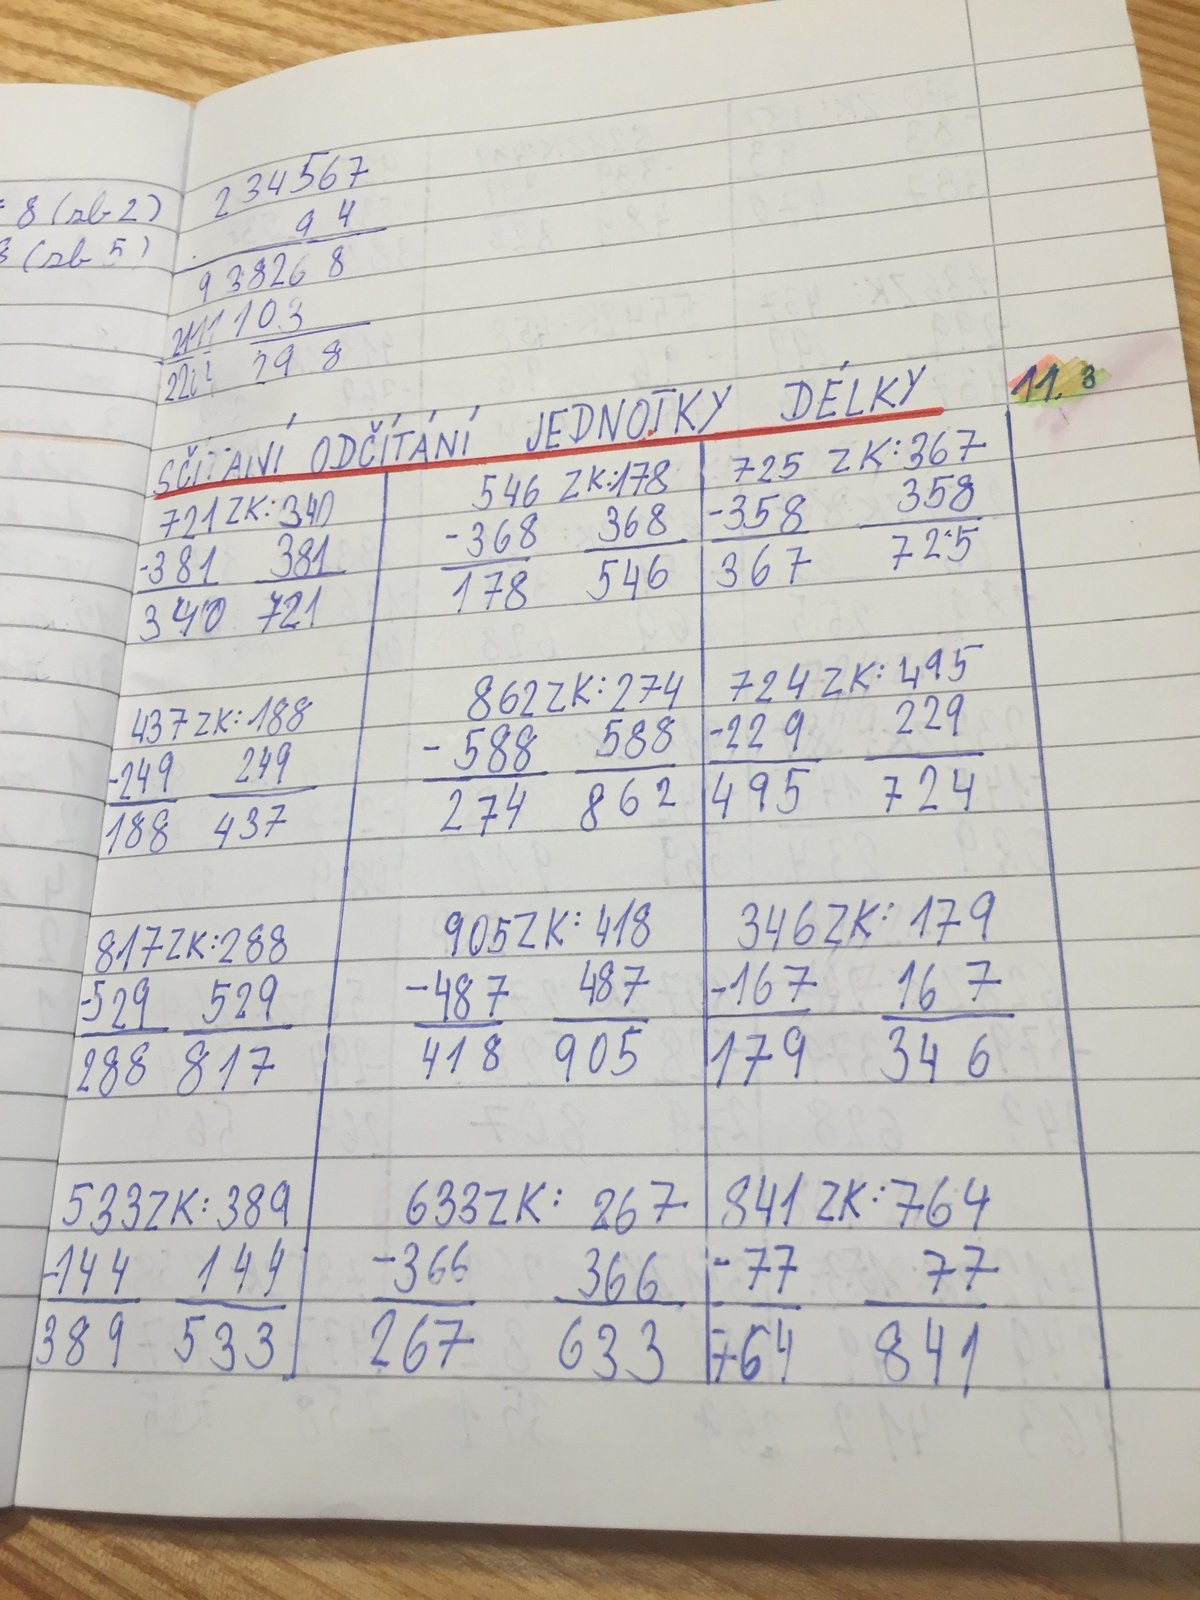 = 8 (zb 2)
3 (zb 5)
234567
94
938268
2111103
298
SČÍTÁNÍ ODČÍTÁNÍ JEDNOTKY DÉLKY
11. 3
721 ZK: 340
-381 381
340 721
546 ZK: 178
-368 368
178 546
725 ZK: 367
-358 358
367 725
437 ZK: 188
-249 249
188 437
862 ZK: 274
-588 588
274 862
724 ZK: 495
-229 229
495 724
817 ZK: 288
-529 529
288 817
905 ZK: 418
-487 487
418 905
346 ZK: 179
-167 167
179 346
533 ZK: 389
-144 144
389 533
633 ZK: 267
-366 366
267 633
841 ZK: 764
-77 77
764 841